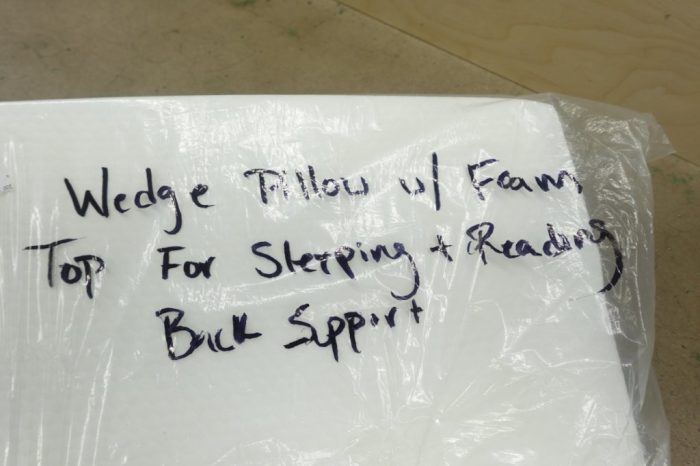 Wedge Pillow w/ Foam
Top For Sleeping + Reading
Back Support